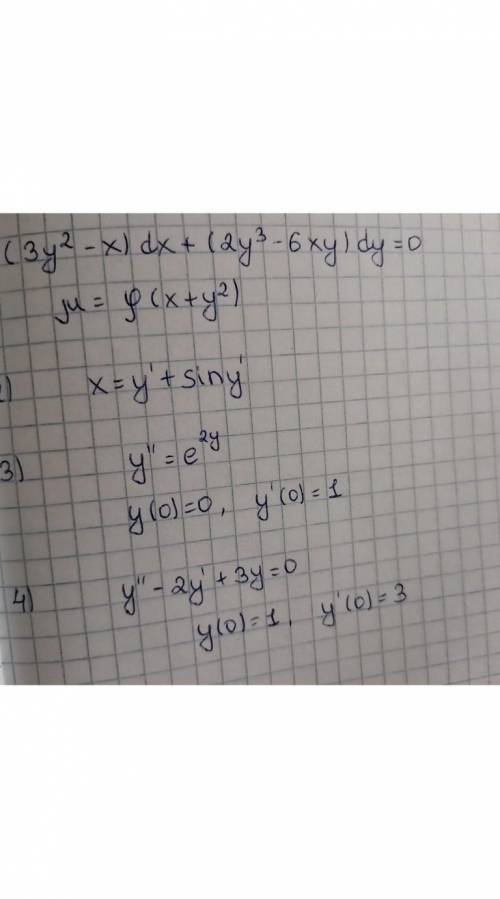 (3y² - x) dx + (2y³ - 6xy) dy = 0
μ = φ (x + y²)
) x = y' + sin y'
3) y'' = e^{2y}
y(0) = 0, y'(0) = 1
4) y'' - 2y' + 3y = 0
y(0) = 1, y'(0) = 3